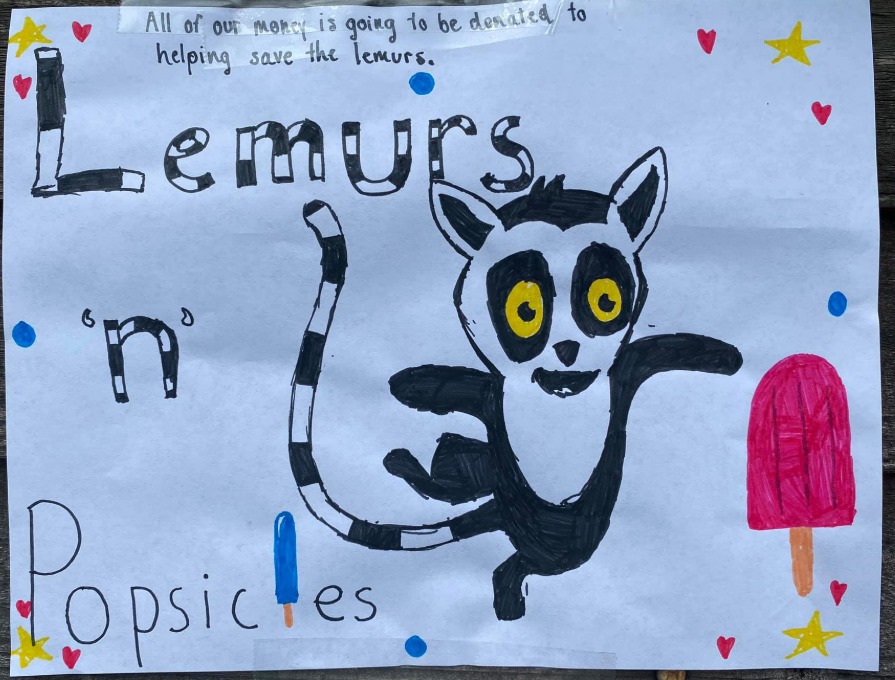 All of our money is going to be donated to
helping save the lemurs.
Lemurs
'n'
Popsicles